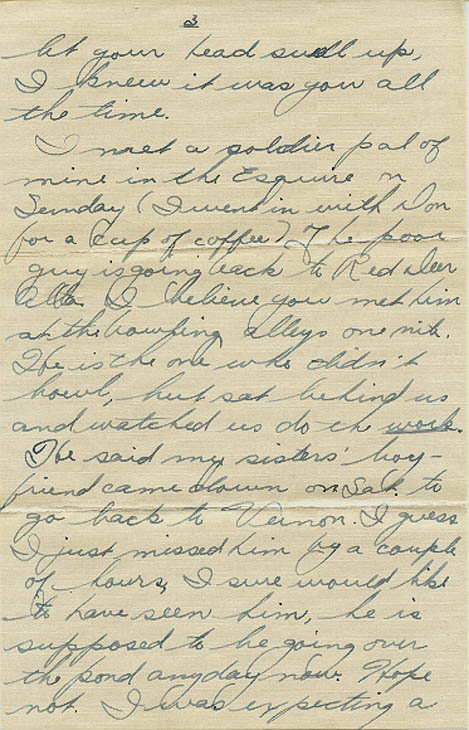 3
let your head swell up,
I knew it was you all
the time.
I met a soldier pal of
mine in the Esquire on
Sunday (I went in with Don
for a cup of coffee) The poor
guy is going back to Red Deer
Alta. I believe you met him
at the bowling alleys one nite.
He is the one who didn't
bowl, but sat behind us
and watched us do the work.
He said my sisters' boy-
friend came down on Sat. to
go back to Vernon. I guess
I just missed him by a couple
of hours, I sure would like
to have seen him, he is
supposed to be going over
the pond anyday now. Hope
not. I was expecting a